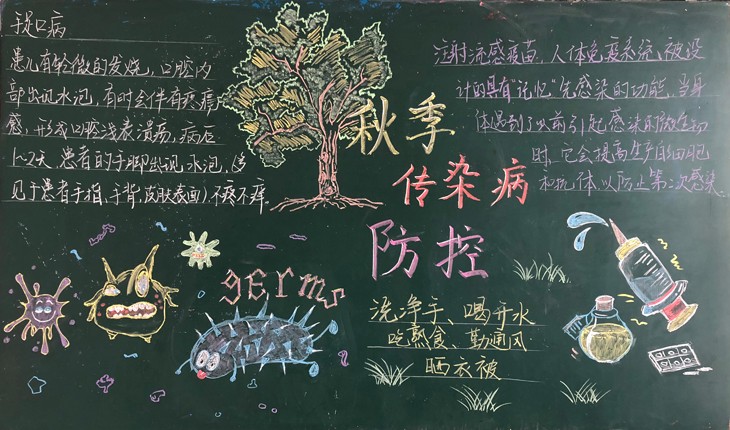 手足口病
患儿有轻微的发烧，口腔内
部出现水泡，有时会伴有疼痛
感，形成口腔浅表溃疡，病后
1~2天，患者的手脚出现水泡，(多
见于患者手指、手背、皮肤表面)，不疼不痒。
秋季
传染病
防控
注射流感疫苗，人体免疫系统被设
计的具有“记忆”先感染的功能，当身
体遇到了以前引起感染的微生物
时，它会提高生产白细胞
和抗体，以防止第二次感染
germs
洗净手、喝开水
吃熟食、勤通风
晒衣被